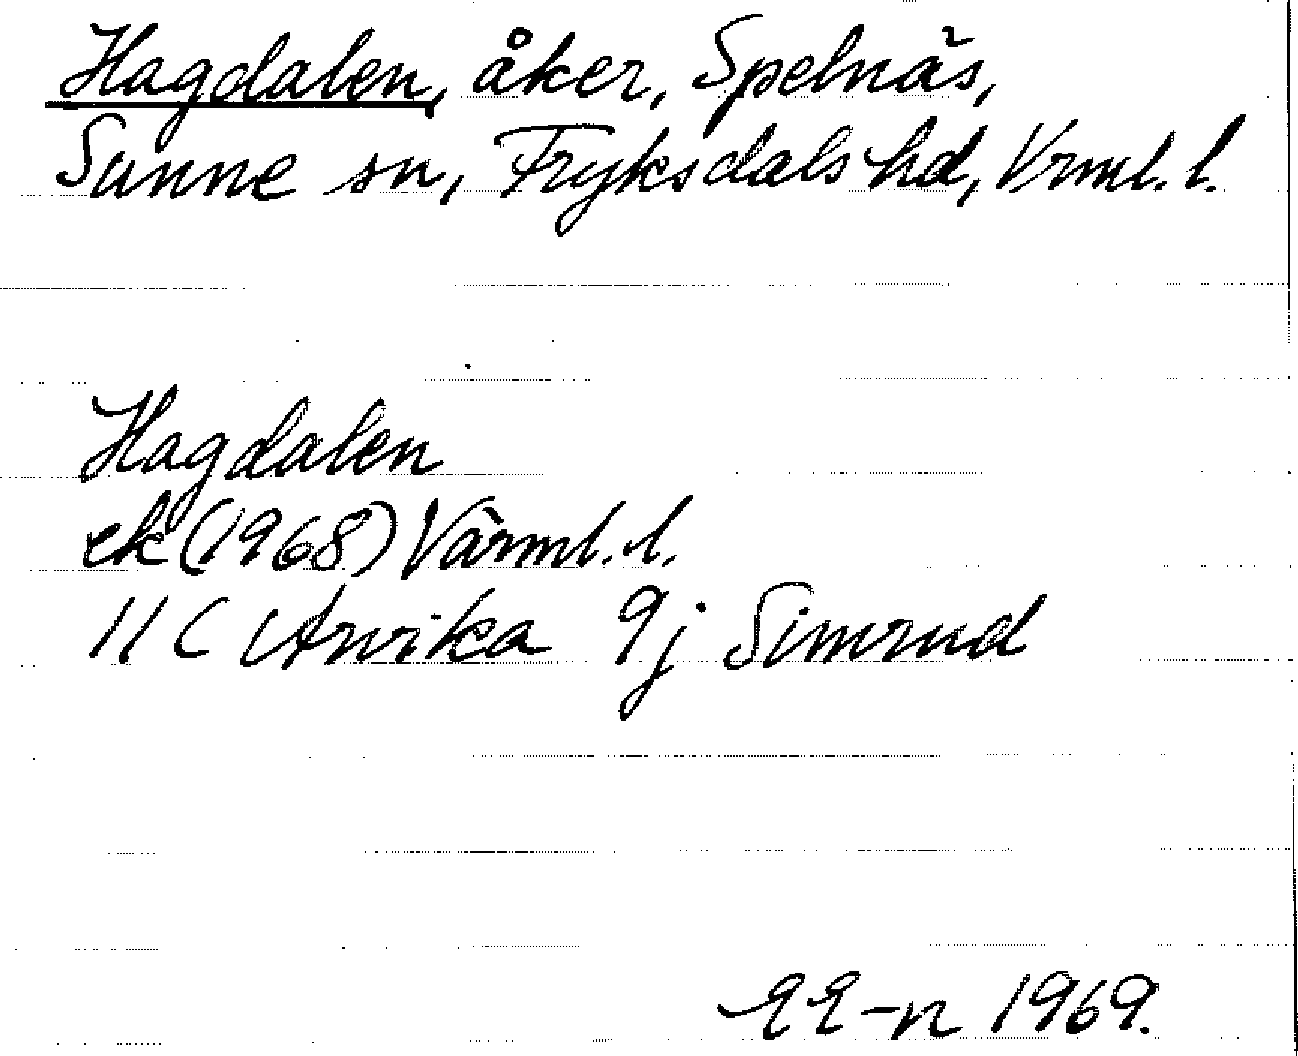 Hagdalen, åker, Spelnäs,
Sunne sn, Fryksdals hd, Vrml. l.
Hagdalen
ek (1968) Värml. l.
11 C Arvika 9j Simrud
EE-n 1969.